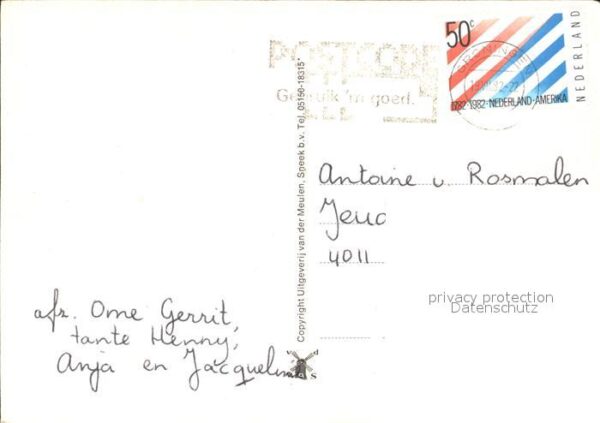 POSTCODE
Gebruik 'm goed.
50c
NEDERLAND
1782·1982·NEDERLAND-AMERIKA
GRONINGEN
Copyright Uitgeverij van der Meulen, Sneek b.v. Tel. 05150-18315*
Antoine v. Rosmalen
4011
privacy protection
Datenschutz
afz. Ome Gerrit,
tante Henny,
Anja en Jacqueline